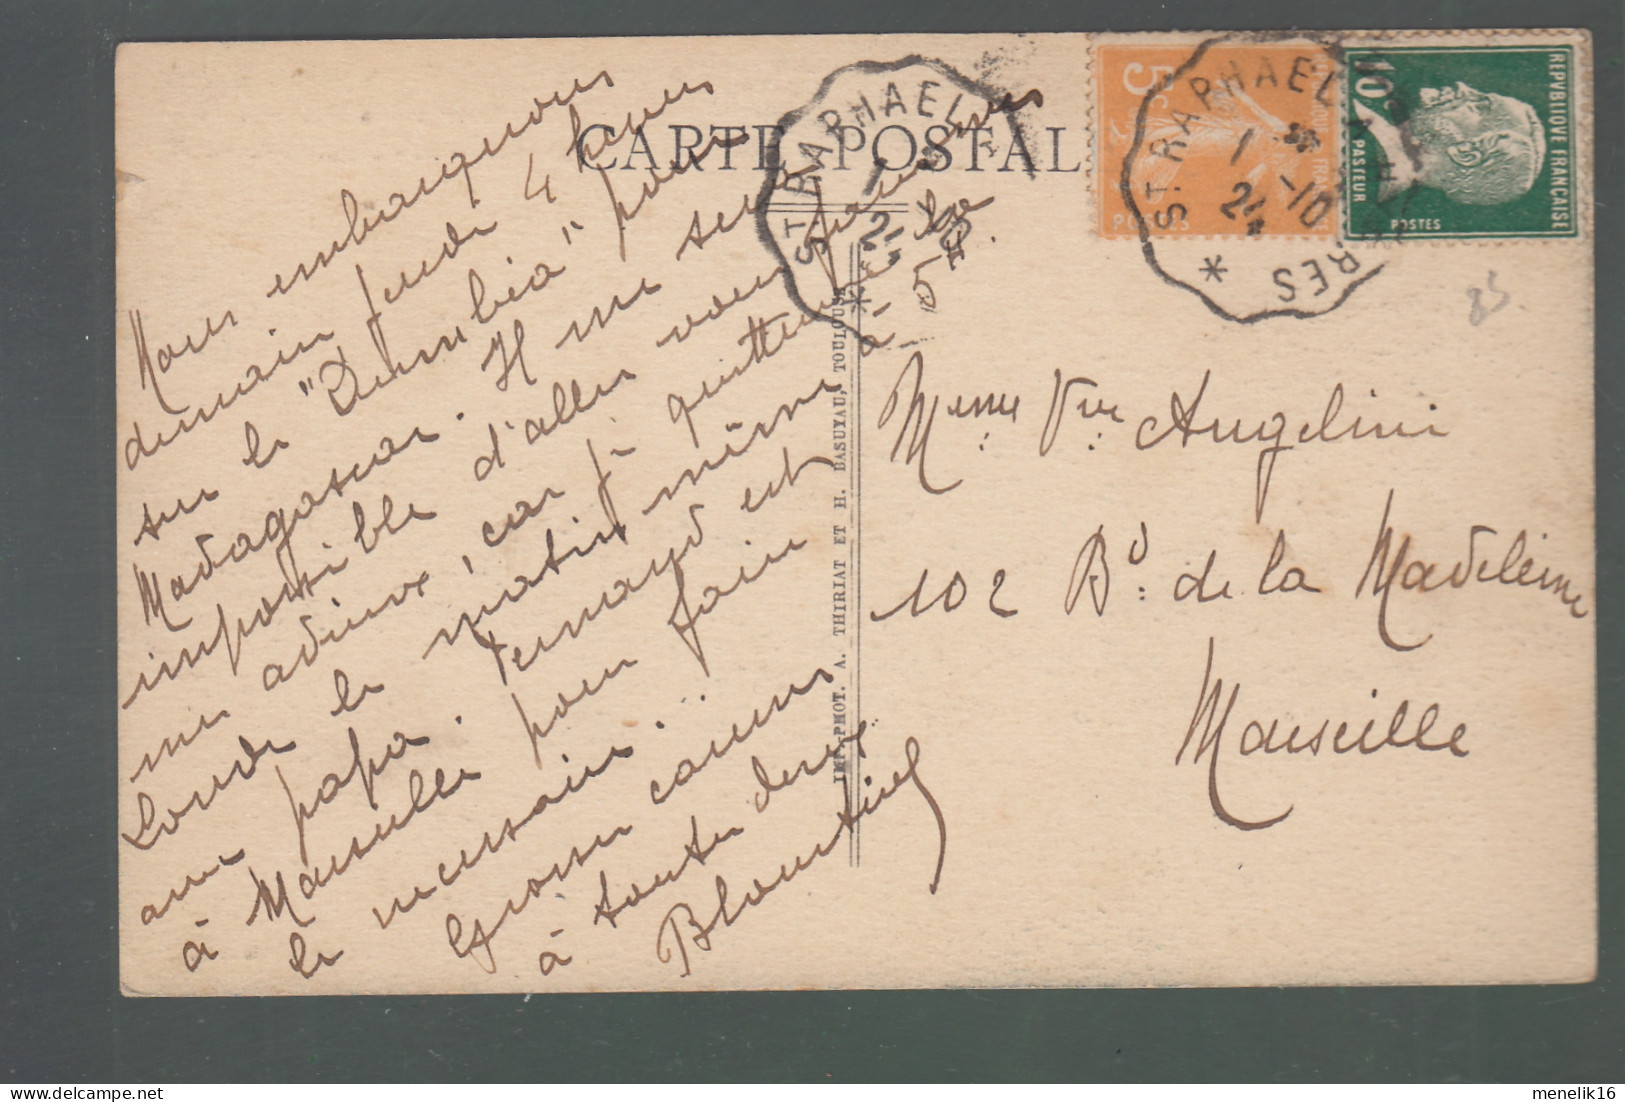 CARTE POSTALE
Nous embarquons
demain jeudi 4 heures
sur le "Dumbéa" pour
Madagascar. Il me sera
impossible d'aller vous faire
mes adieux, car je quitterai la
Londe le matin même à 5 H.
avec papa. Fernand est
à Marseille pour faire
le nécessaire.
Grosses caresses
à toutes deux
IMP.-PHOT. A. THIRIAT ET H. BASUYAU, TOULOUSE
ST. RAPHAEL
1
24
*
5c
POSTES
ST. RAPHAEL A HYERES
1 -10
24
*
10c
REPVBLIQVE FRANÇAISE
PASTEUR
POSTES
85
Mme Vve Angelini
102 Bd. de la Madeleine
Marseille
menelik16